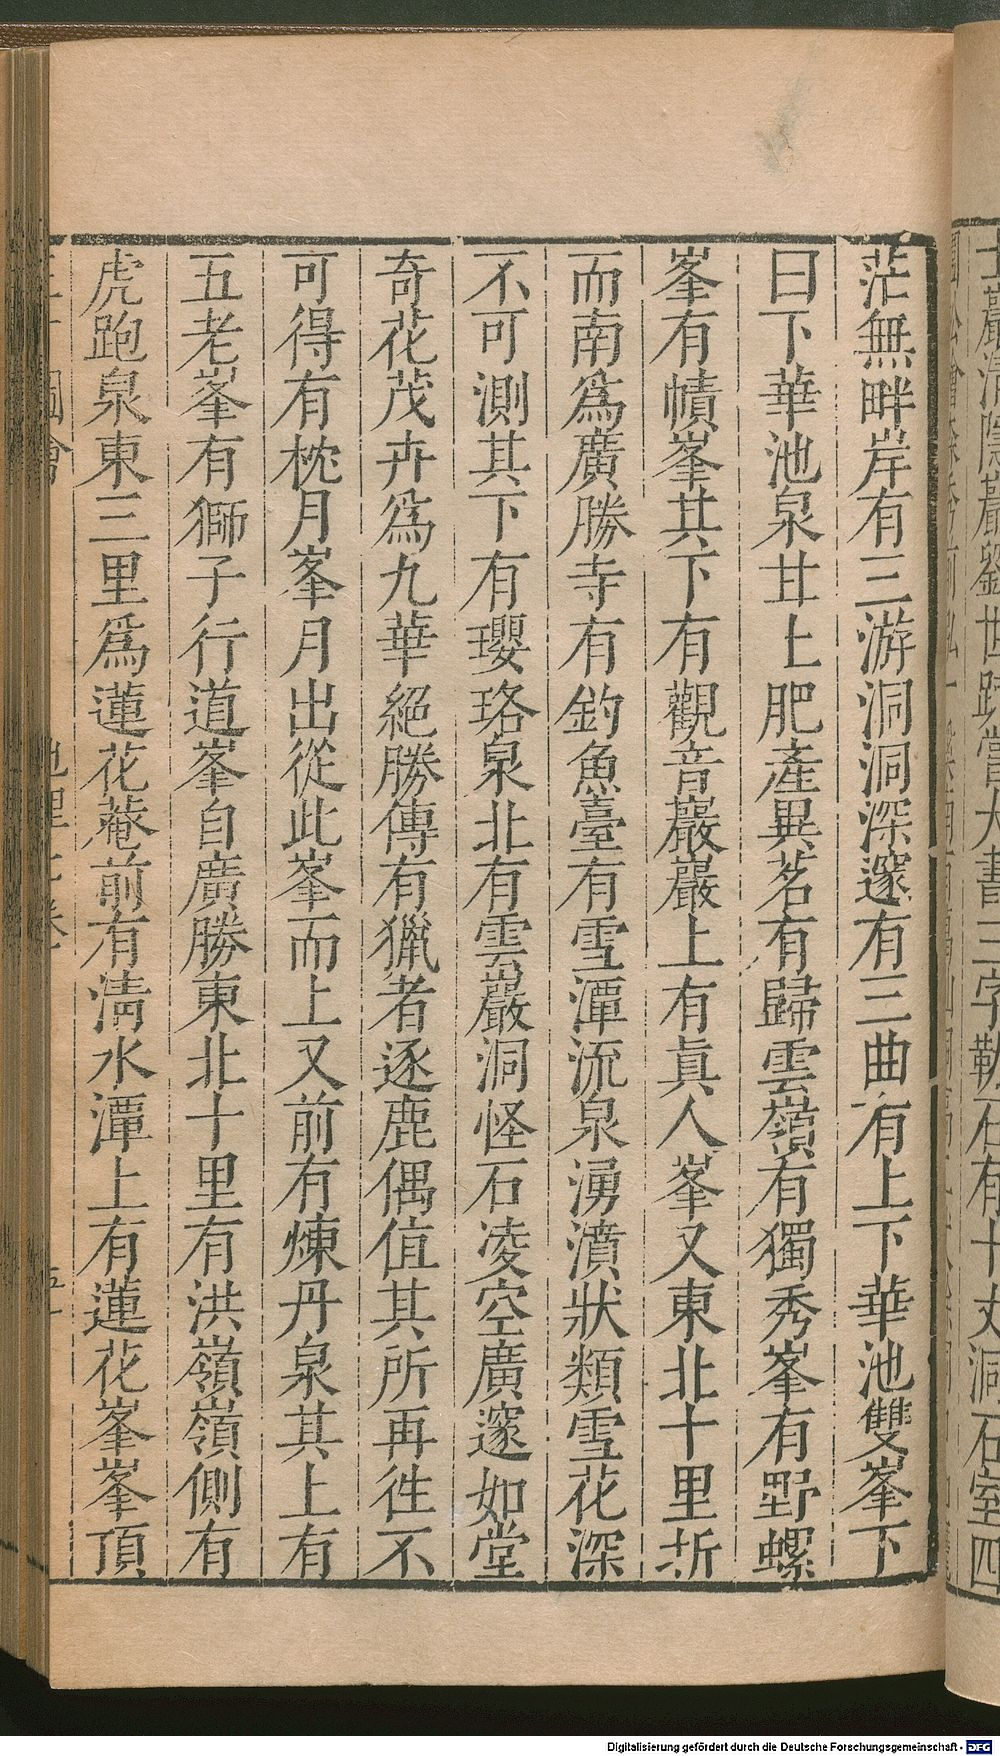 茫無畔岸有三游洞洞深邃有三曲有上下華池雙峯下
曰下華池泉甘土肥產異茗有歸雲嶺有獨秀峯有野螺
峯有幘峯其下有觀音巖巖上有真人峯又東北十里折
而南爲廣勝寺有釣魚臺有雪潭流泉湧濆狀類雪花深
不可測其下有瓔珞泉北有雲巖洞怪石凌空廣邃如堂
奇花茂卉爲九華絕勝傳有獵者逐鹿偶值其所再徃不
可得有枕月峯月出從此峯而上又前有煉丹泉其上有
五老峯有獅子行道峯自廣勝東北十里有洪嶺嶺側有
虎跑泉東三里爲蓮花菴前有清水潭上有蓮花峯峯頂
Digitalisierung gefördert durch die Deutsche Forschungsgemeinschaft - DFG